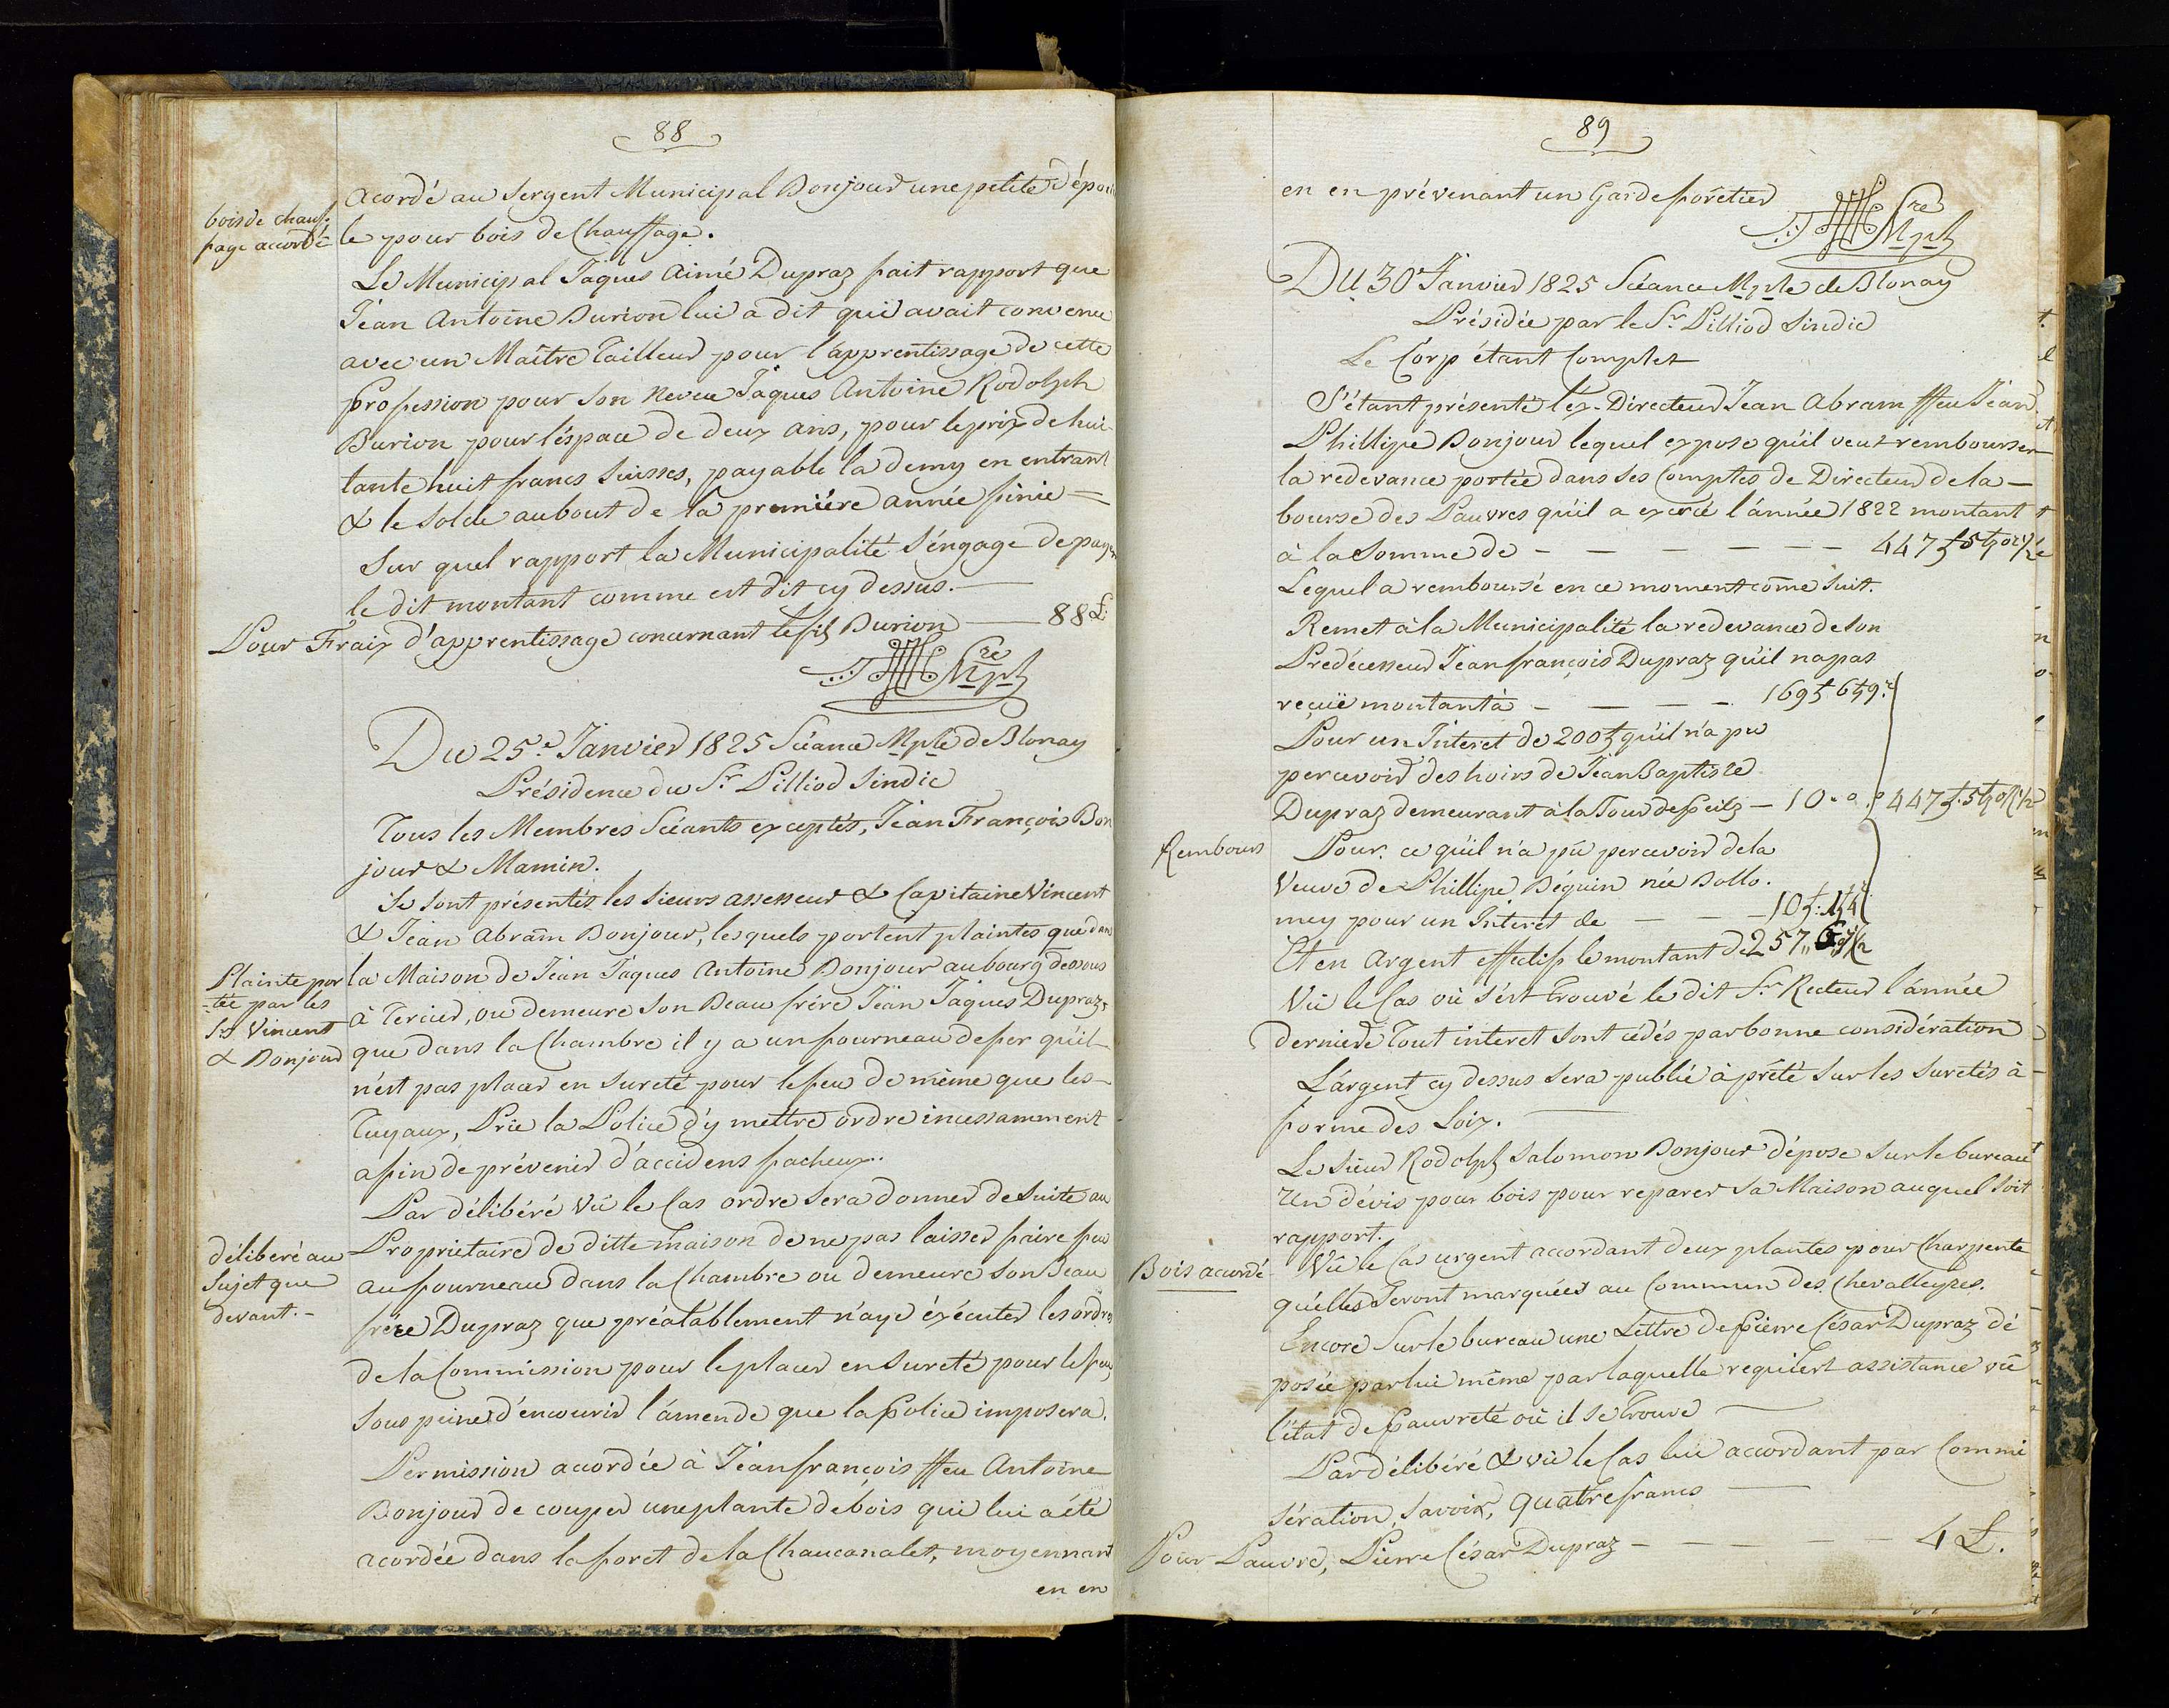 88
bois de chauf-
fage accordé
acordé au Sergent Municipal Bonjour une petite dépou
le pour bois de Chauffage.
Le Municipal Jâques Aimé Dupraz fait rapport que
Jéan Antoine Burion lui a dit qui avait convenu
avec un Maître Tailleur pour l'apprentissage de cette
profession pour son neveu Jâques Antoine Rodolph
Burion pour léspace de deux ans, pour le prix de hui
tante huit francs Suisses, payable la demy en entrant
& le solde au bout de la premiére année finie —
Sur quel rapport la Municipalité s'éngage de payer
le dit montant comme est dit cy dessus. —
Pour Fraix d'apprentissage concernant le fils Burion — 88 L.
Sre
Mpl
Du 25.e Janvier 1825 Séance Mple de Blonay
Présidence du Sr. Pilliod Sindic
Tous les Membres Séants exceptés, Jéan François Bon
jour & Mamin.
Plainte por
-tée par les
Srs Vincent
& Bonjour
Se sont présentés les Sieurs assesseur & Capitaine Vincent
& Jéan Abram Bonjour, lesquels portent plaintes que dans
la Maison de Jéan Jâques Antoine Bonjour au bourg dessous
à Tercier, ou demeure son Beau frére Jéan Jâques Dupraz,
que dans la Chambre il y a un fourneau de fer qu'il
n'est pas placer en Sureté pour le feu de même que les
Tuyaux, Prie la Police d'y mettre ordre incessamment
afin de prévenir d'accidens facheux.
délibéré au
Sujet que
devant. -
Par délibéré Vû le Cas ordre sera donner de Suite au
Propriétaire de ditte maison de ne pas laisser faire feu
au fourneau dans la Chambre ou demeure son Beau
frére Dupraz que préalablement n'aye éxécuter les ordres
de la Commission pour le placer en Sureté pour le feu,
Sous peine d'encourir l'ámende que la police imposera.
Permission acordée à Jéan françois ffeu Antoine
Bonjour de couper une plante de bois qui lui a été
acordée dans la foret de la Chaucanalet, moyennant
en en
89
en en prévenant un Garde forétier
Sre
Mpl
Du 30e Janvier 1825 Séance Mple de Blonay
Présidée par le Sr. Pilliod Sindic
Le Corp étant Complet
S'étant présenté l'éx-Directeur Jean Abram ffeu Jéan
Phillipe Bonjour lequel expose qu'il veut rembourser
la redevance portée dans ses Comptes de Directeur de la —
bourse des Pauvres qu'il a exercé l'ánnée 1822 montant
à la Somme de — — — — — —
Lequel a remboursé en ce moment come suit.
Remet à la Municipalité la redevance de son
Prédécesseur Jéan françois Dupraz qu'il n'a pas
reçuë montant à — — — —
Pour un Interet de 200 qu'il n'a pu
percevoir des hoirs de Jéan Baptiste
Dupraz demeurant à la Tour de peilz — 10 " "
Rembours
Pour ce qu'il n'a pû percevoir de la
Veuve de Phillipe Béguin née Bollo.
mey pour un Interêt de — — —
Et en Argent effectif le montant de
Vû le Cas où s'ést Trouvé le dit Sr. Recteur l'ánnée
derniere Tout interet sont cédés par bonne considération
L'árgent cy dessus sera publié à prêté sur les suretés à
forme des Loix. —
Le Sieur Rodolph Salomon Bonjour dépose sur le bureau
un dévis pour bois pour reparer sa Maison auquel soit
rapport.
Bois accordé
Vû le Cas urgent accordant deux plantes pour Charpente
qu'elles Seront marquées au Commun des Chevalleyres.
Encore Sur le bureau une Léttre de pierre César Dupraz dé
posée par lui même par laquelle requiert assistance vû
l'état de pauvreté où il se trouve —
Par délibéré & vû le Cas lui accordant par Commi
sération, Savoir, Quatre francs —
Pour Pauvre, Pierre César Dupraz — — — — 4 L.